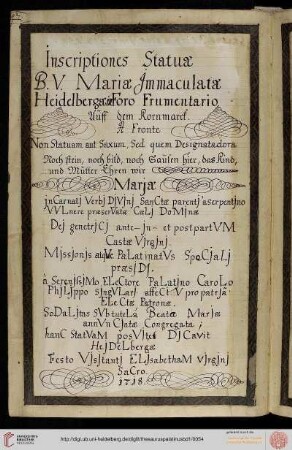 Inscriptiones Statuæ
B. V. Mariæ Immaculatæ
Heidelbergæ in Foro Frumentario
Auff dem Kornmarck.
A Fronte
Non Statuam aut Saxum, Sed quem Designat adora
Noch stein, noch bild, noch Saulen hier, das Kind,
und Mütter Ehren wir
Mariæ
InCarnatI VerbI DIVInI SanCtæ parentI a serpentIno
VVLnere præserVatæ CæLI DoMInæ
DeI genetrICI ante-In- et post partVM
Castæ VIrgInI
MIssIonIs atqVe PaLatInatVs SpeCIaLI
præsIDI.
à SerenIssIMo ELeCtore PaLatIno CaroLo
PhILIppo sIngVLarI affeCtV pro patrIæ
ELeCtæ Patronæ.
SoDaLItas SVb tuteLa Beatæ MarIæ
annVnCIatæ Congregata;
hanC StatVaM posVIt et DICaVit
HeIDeLbergæ
Festo VIsItantIs ELIsabethaM VIrgInI
SaCro.
1718
http://digi.ub.uni-heidelberg.de/diglit/thesauruspalatinusbd1/0054